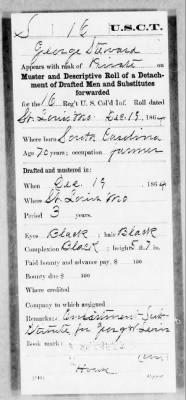 S 16 U.S.C.T.
George Steward
Appears with rank of Private on
Muster and Descriptive Roll of a Detach-
ment of Drafted Men and Substitutes
forwarded
for the 16 Reg't U. S. Col'd Inf. Roll dated
St. Louis Mo Dec. 19, 1864
Where born South Carolina
Age 70 years; occupation farmer
Drafted and mustered in:
When Dec. 19, 1864
Where St. Louis Mo
Period 3 years.
Eyes Black; hair Black
Complexion Black; height 5 ft. 7 in.
Paid bounty and advance pay, $ 100
Bounty due $ 100
Where credited
Company to which assigned
Remarks: Enlistment-Sub-
stitute for George W. Lewis
Book mark: